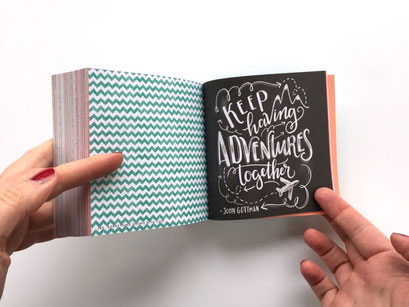 KEEP
having
ADVENTURES
together
-JOHN GOTTMAN